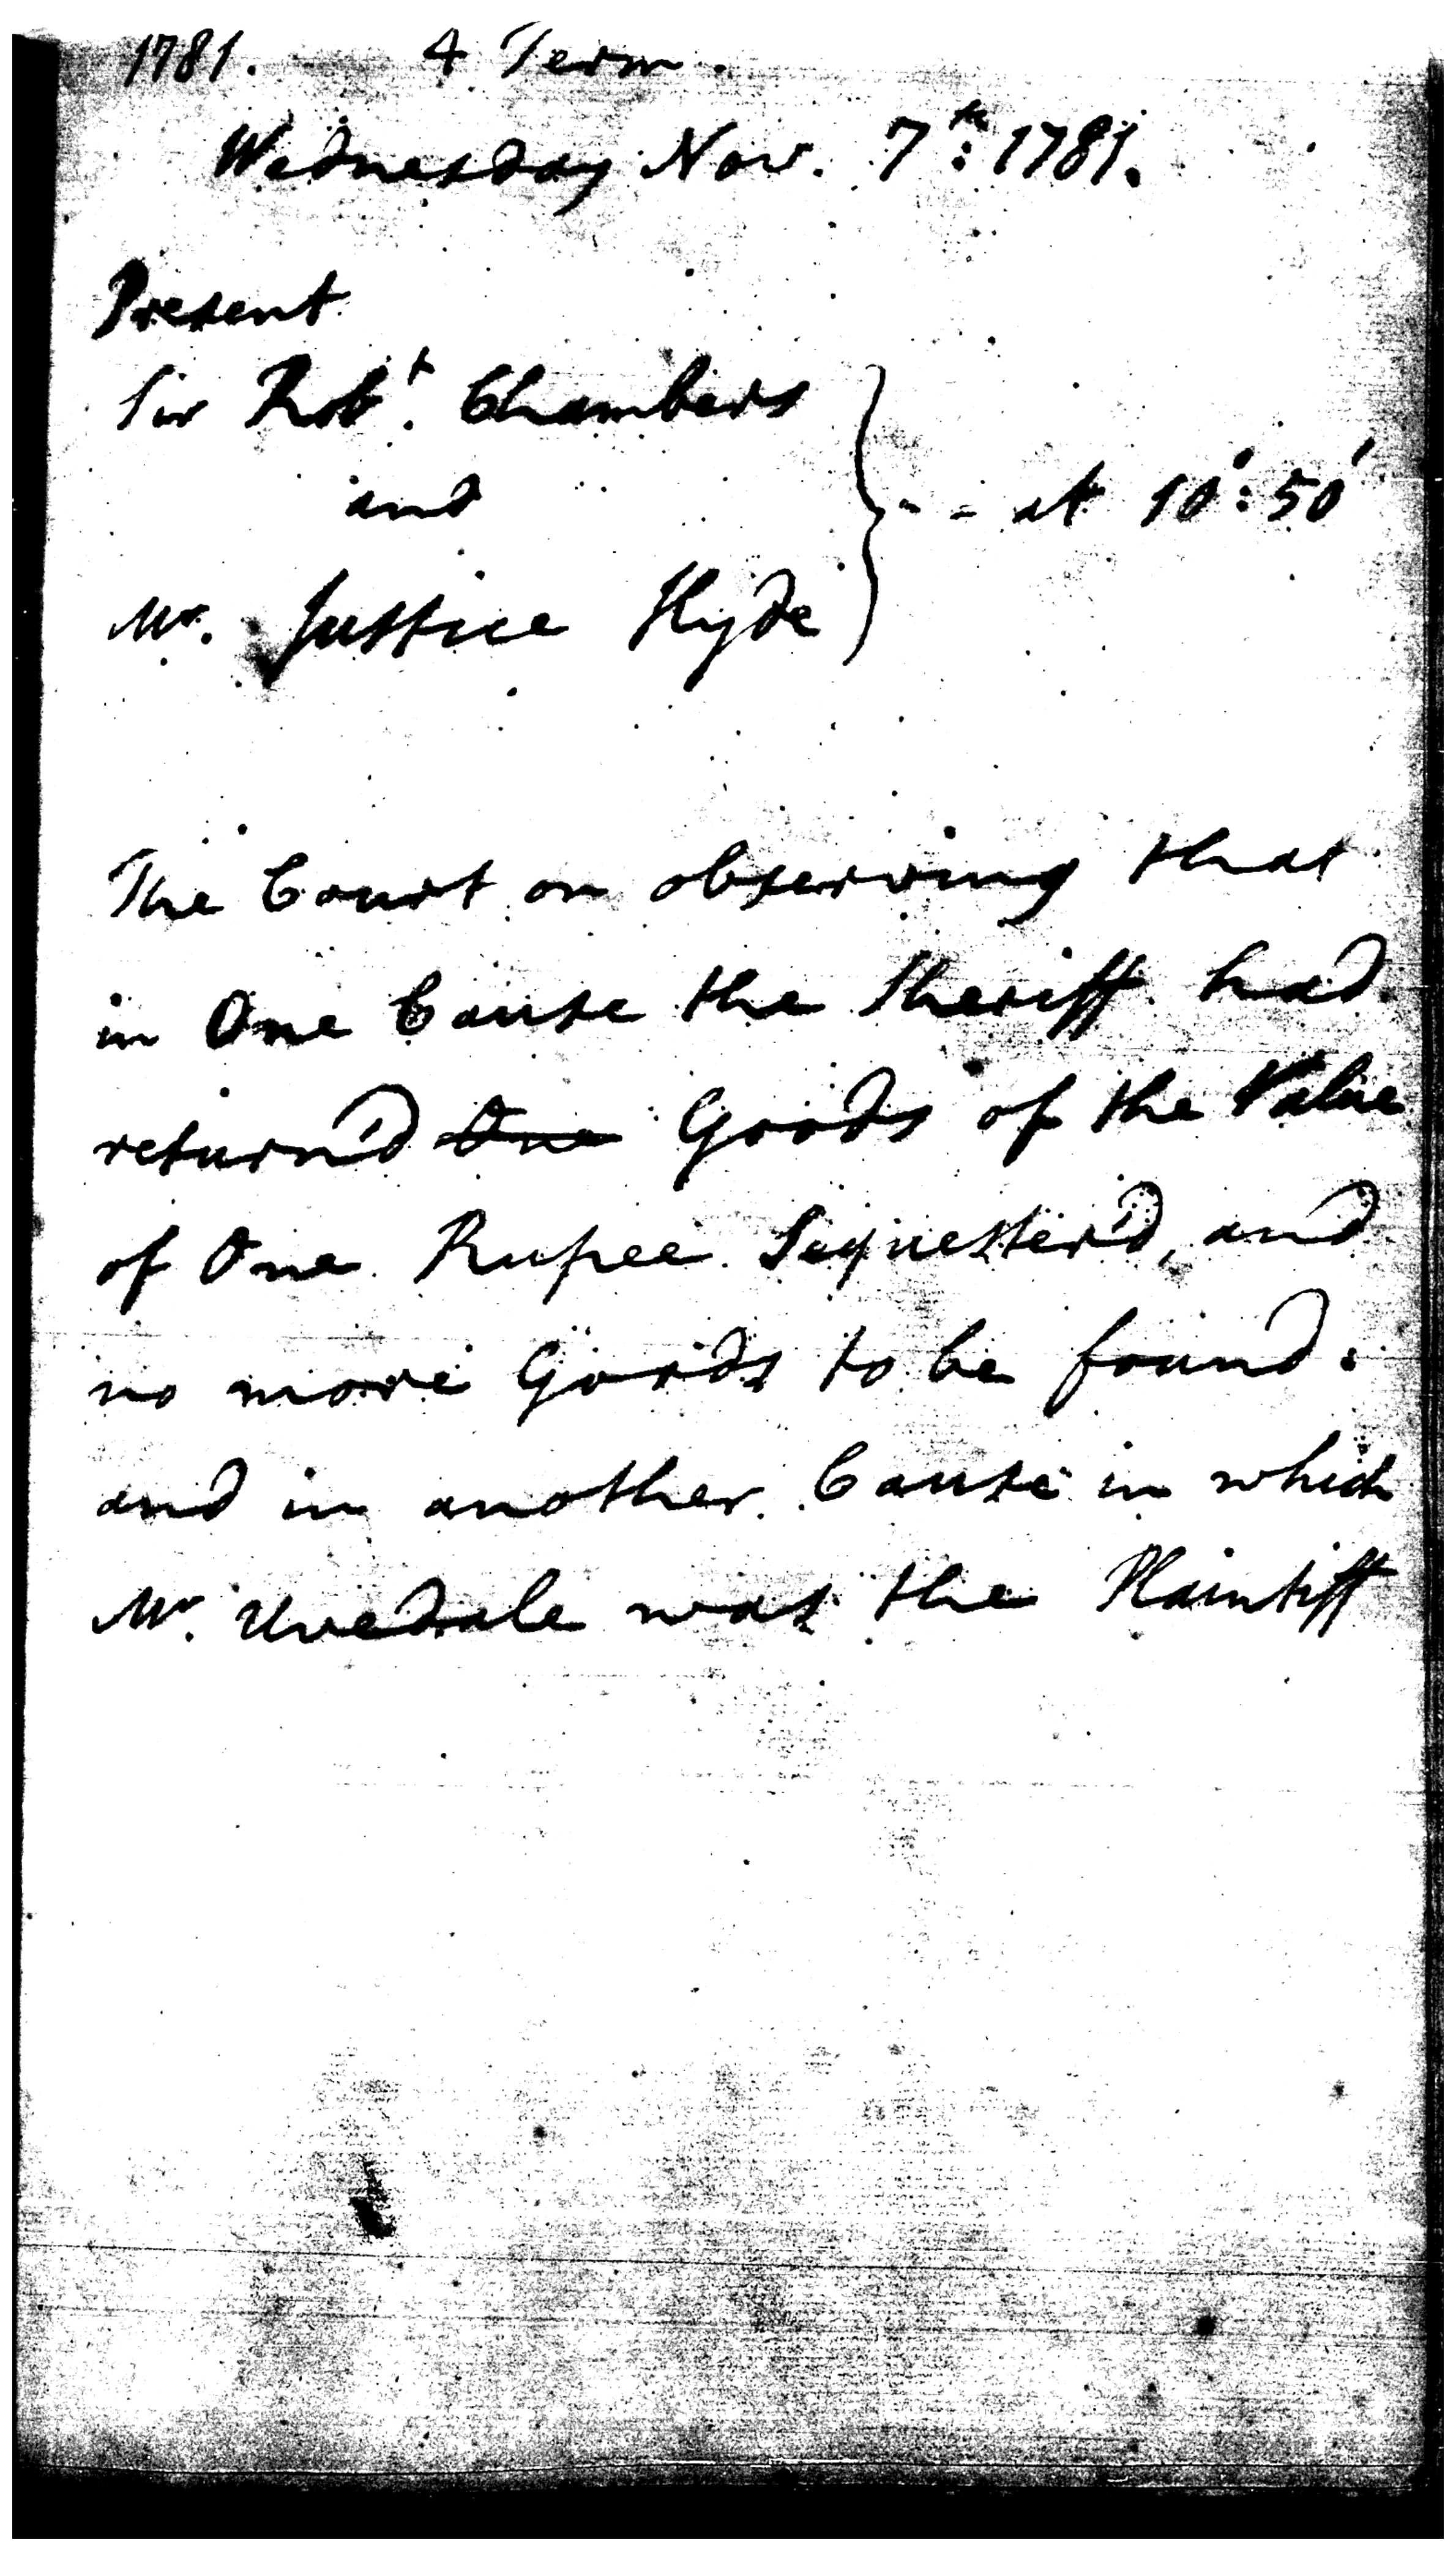 1781. 4 Term.
Wednesday Nov. 7th: 1781.
Present
Sir Robt. Chambers
and
- - at 10°: 50'
Mr. Justice Hyde
The Court on observing that
in One Cause the Sheriff had
return'd One Goods of the Value
of One Rupee Sequester'd, and
no more Goods to be found.
and in another Cause in which
Mr. Uvedale was the Plaintiff